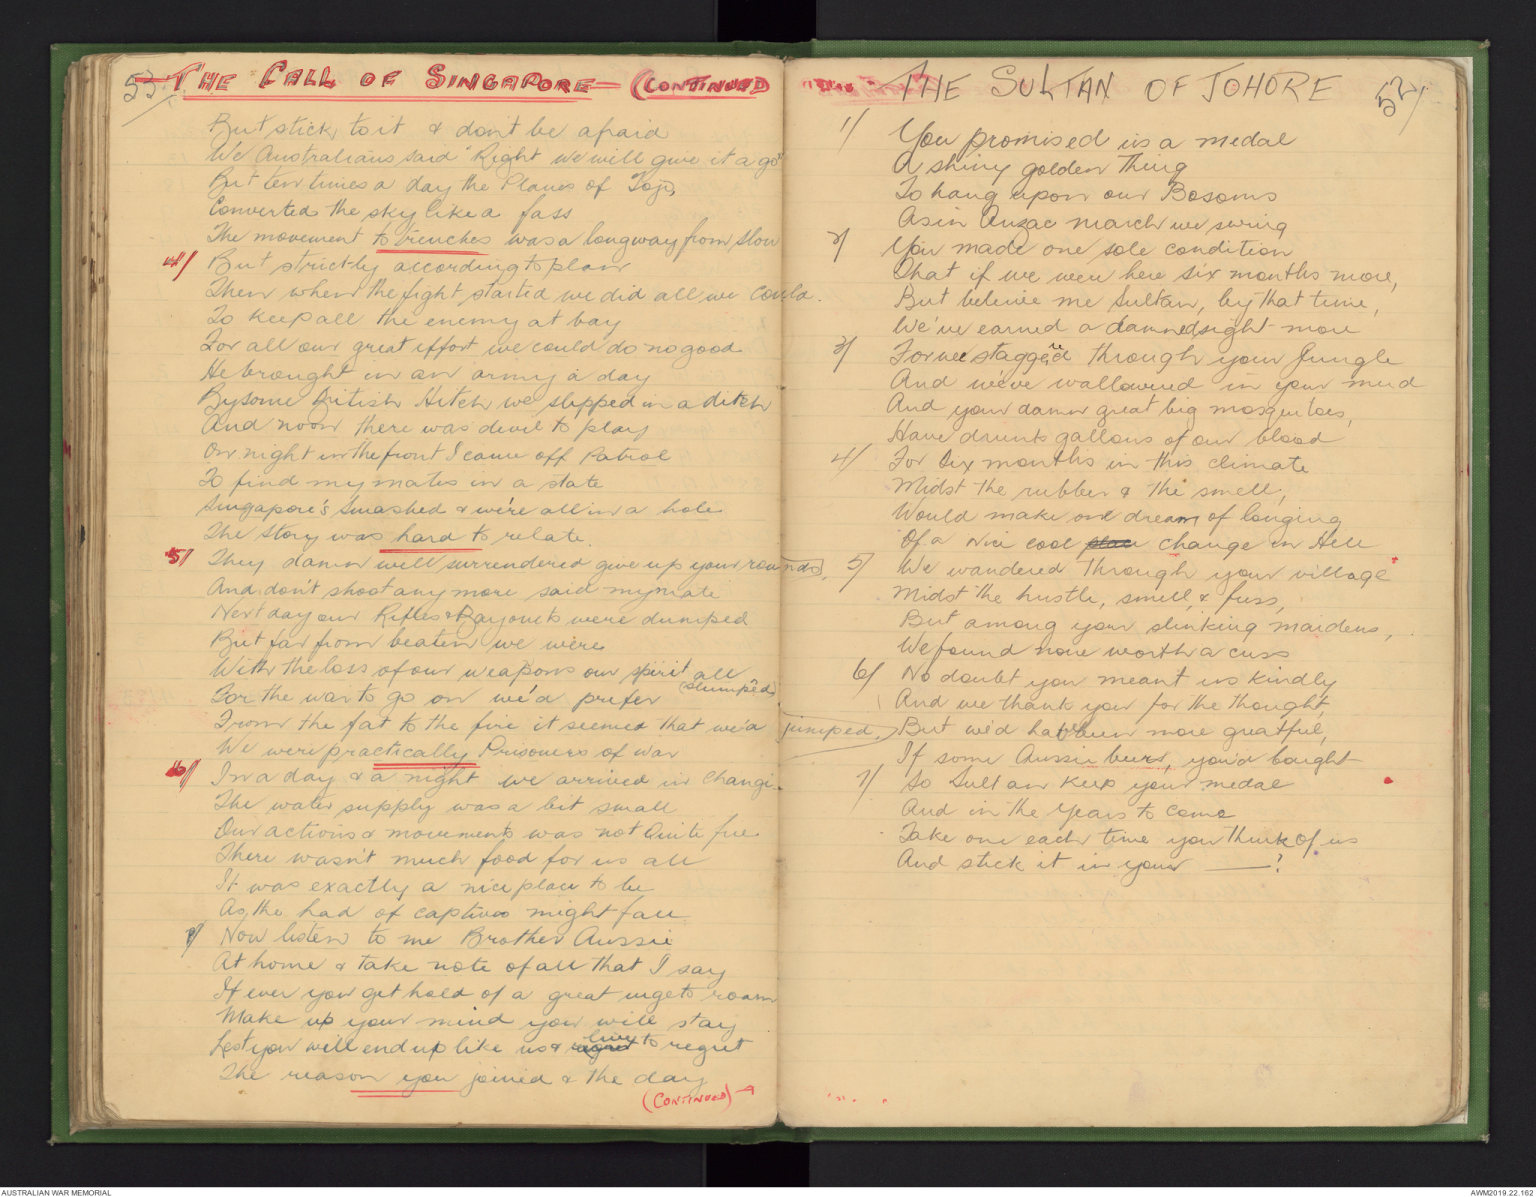 53.
THE CALL OF SINGAPORE (CONTINUED)
But stick to it & don't be afraid
We Australians said "Right we will give it a go"
But ten times a day the Planes of Tojo,
Converted the sky like a fass
The movement to trenches was a long way from slow
4/ But strictly according to plan
Then when the fight started we did all we could.
To keep all the enemy at bay
For all our great effort we could do no good
He brought in an army a day
By some British Hitch we slipped in a ditch
And noon there was devil to play
On night in the front I came off Patrol
To find my mates in a state
Singapore's Smashed & we're all in a hole
The Story was hard to relate.
5/ They damn well surrendered give up your rounds,
And don't shoot any more said my mate
Next day our Rifles & Bayonets were dumped
But far from beaten we were
With the loss of our weapons our spirit all slumped
For the war to go on we'd prefer
From the fat to the fire it seemed that we'd jumped.
We were practically Prisoners of War
6/ In a day & a night we arrived in Changi.
The water supply was a bit small
Our actions & movements was not Quite free
There wasn't much food for us all
It was exactly a nice place to be
As the had of captives might fall
7/ Now listen to me Brother Aussie
At home & take note of all that I say
If ever you get hold of a great urge to roam
Make up your mind you will stay
Lest you will end up like us & live to regret
The reason you joined & the day
(CONTINUED)
THE SULTAN OF JOHORE
52/
1/ You promised us a medal
A shiny golden thing
To hang upon our Bosoms
As in Anzac march we swing
2/ You made one sole condition
That if we were here six months more,
But beleive me Sultan, by that time,
We've earned a damned sight more
3/ For we staggered through your Jungle
And we've wallowered in your mud
And your damn great big mosquitoes,
Have drunk gallons of our blood
4/ For Six months in this climate
Midst the rubber & the smell,
Would make one dream of longing
Of a Nice cool place change in Hell
5/ We wandered through your village
Midst the hustle, smell, & fuss,
But among your slinking maidens,
We found none worth a cuss
6/ No doubt you meant us kindly
And we thank you for the thought,
But we'd have been more greatful,
If some Aussie beers, you'd bought
7/ So Sultan keep your medal
And in the Years to come
Take one each time you think of us
And stick it in your ——!
AUSTRALIAN WAR MEMORIAL
AWM2019.22.162